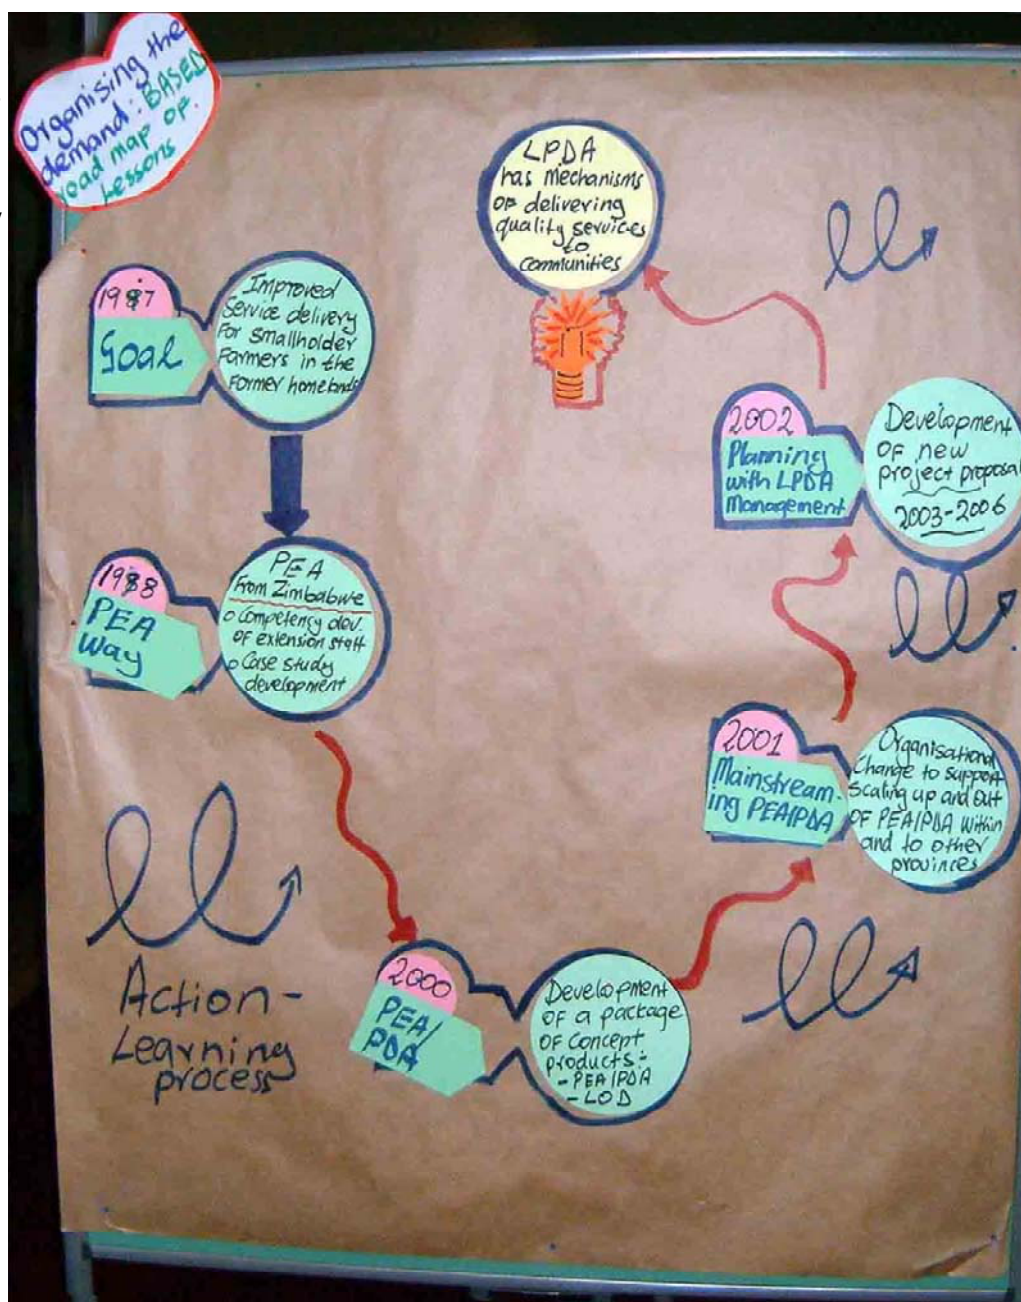 Organising the
demand: BASED
road map of
Lessons
LPDA
has mechanisms
of delivering
quality services
to
communities
Goal
Improved
Service delivery
for smallholder
farmers in the
former homelands
PEA
Way
PEA
From Zimbabwe
o Competency dev.
of extension staff
o Case study
development
Action-
Learning
process
2000
PEA/
PDA
Development
of a package
of concept
products:-
- PEA/PDA
- LOD
2001
Mainstream-
ing PEA/PDA
Organisational
Change to support
scaling up and out
of PEA/PDA within
and to other
provinces
2002
Planning
with LPDA
Management
Development
of new
project proposal
2003-2006